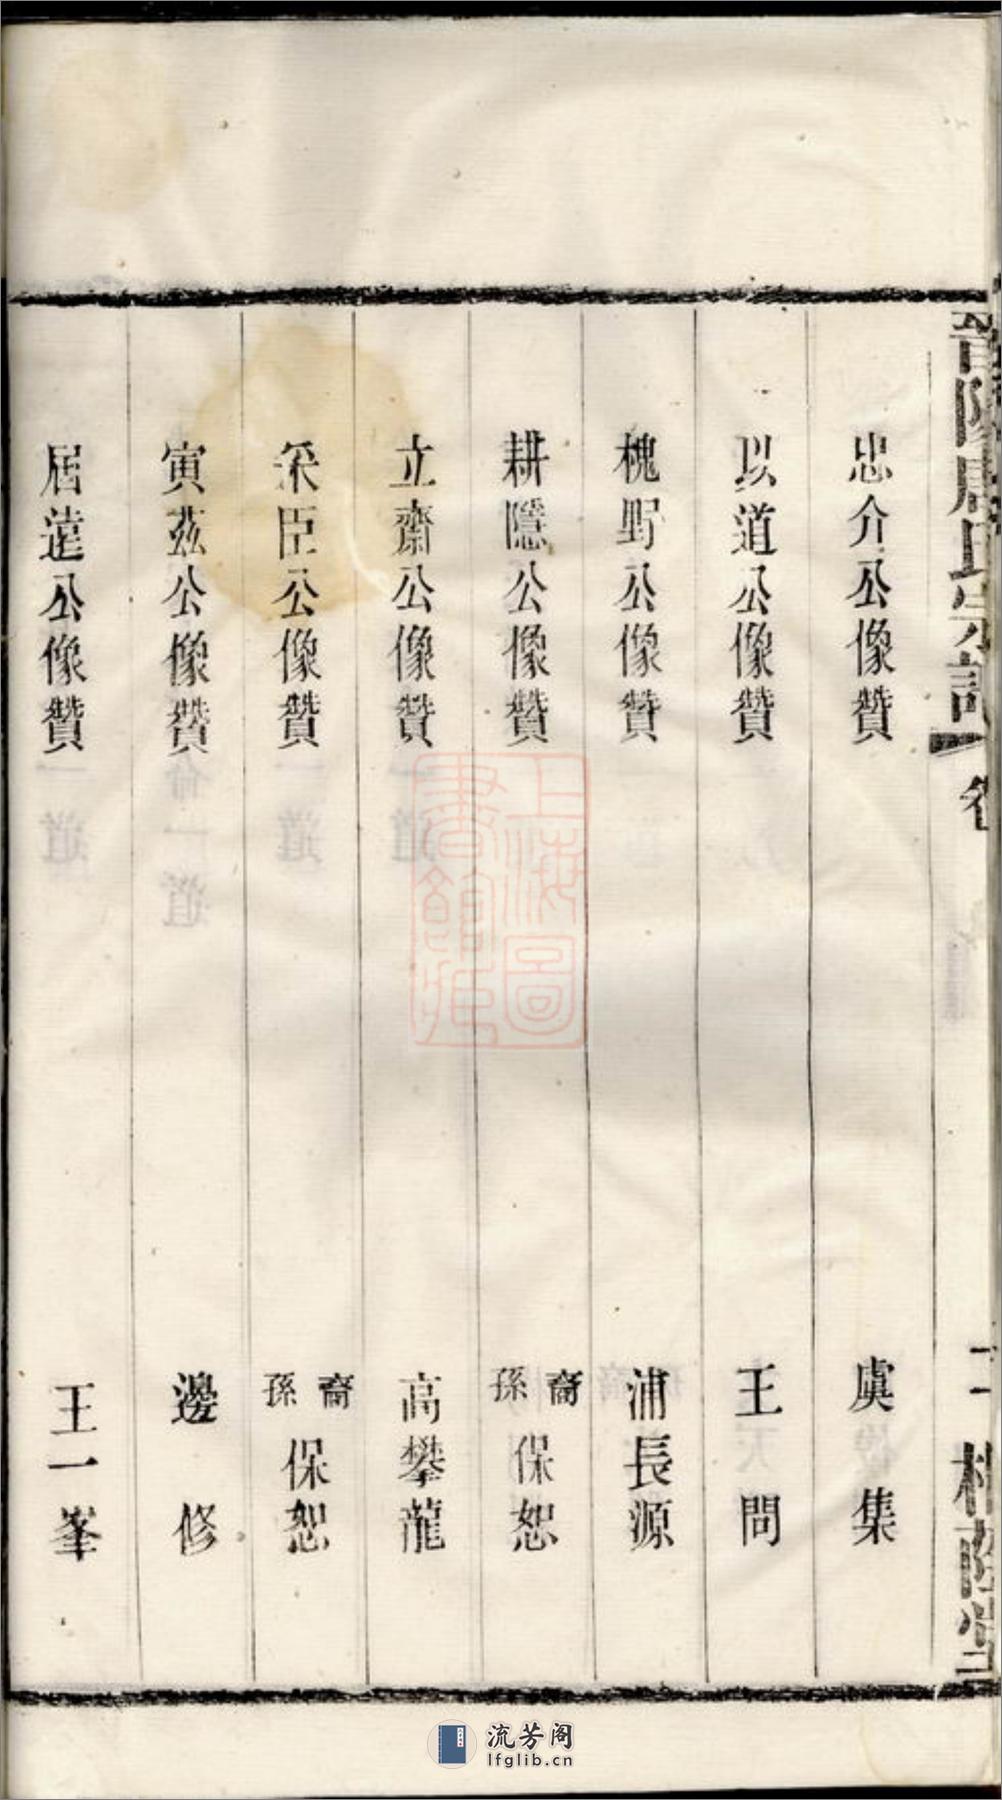 忠介公像贊 虞集
以道公像贊 王問
槐野公像贊 浦長源
耕隱公像贊 裔孫保恕
立齋公像贊 高攀龍
采臣公像贊 裔孫保恕
寅茲公像贊 邊修
居遠公像贊 王一峯
上海圖書館藏
流芳阁
lfglib.cn